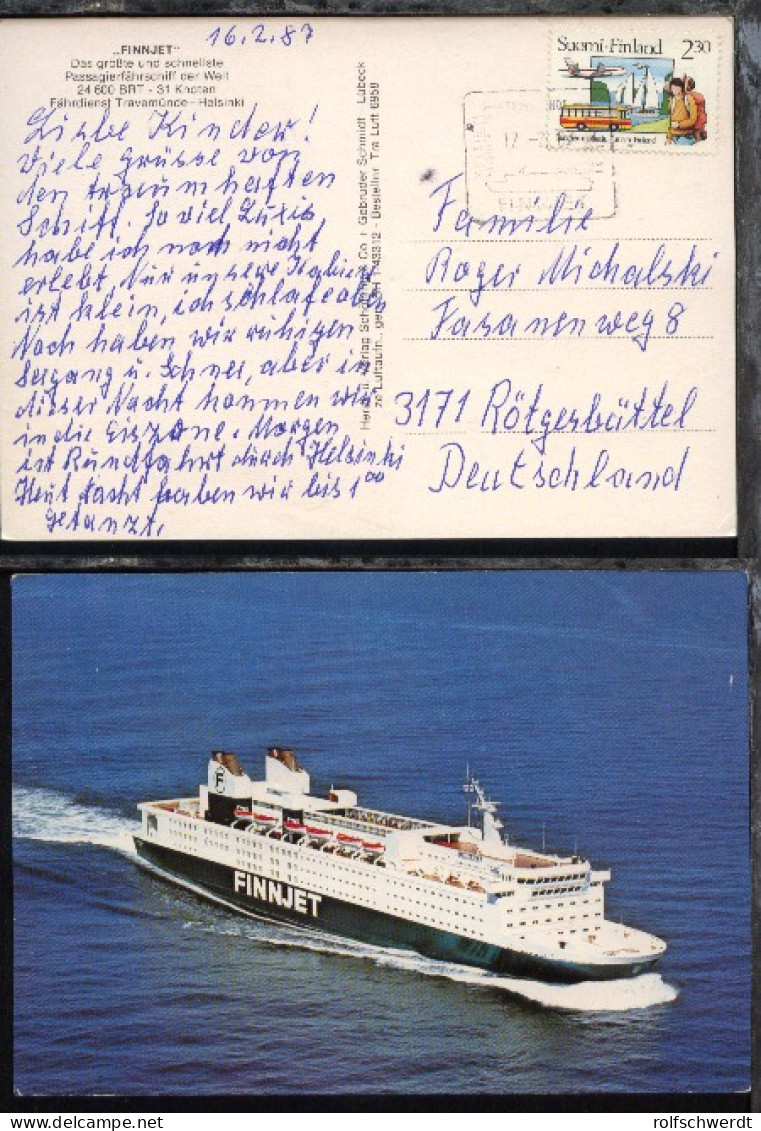 16.2.87
„FINNJET“
Das größte und schnellste
Passagierfährschiff der Welt
24 600 BRT - 31 Knoten
Fährdienst Travemünde–Helsinki
Liebe Kinder!
Viele Grüsse von
den traumhaften
Schiff. So viel Luxis,
habe ich noch nicht
erlebt, Nur unsere Kabine
ist klein, ich schlafe oben
Noch haben wir ruhigen
Seegang u. Schnee, aber in
dieser Nacht kommen wir
in die Eiszone. Morgen
ist Rundfahrt durch Helsinki
Heut Nacht haben wir bis 1 00
Getanzt.
Schöning & Co + Gebrüder Schmidt Lübeck
Bestellnr. Tra Luft 6958
Suomi-Finland 2,30
FINNJET
Familie
Roger Michalski
Fasanenweg 8
3171 Rötgesbüttel
Deutschland
FINNJET
rolfschwerdt